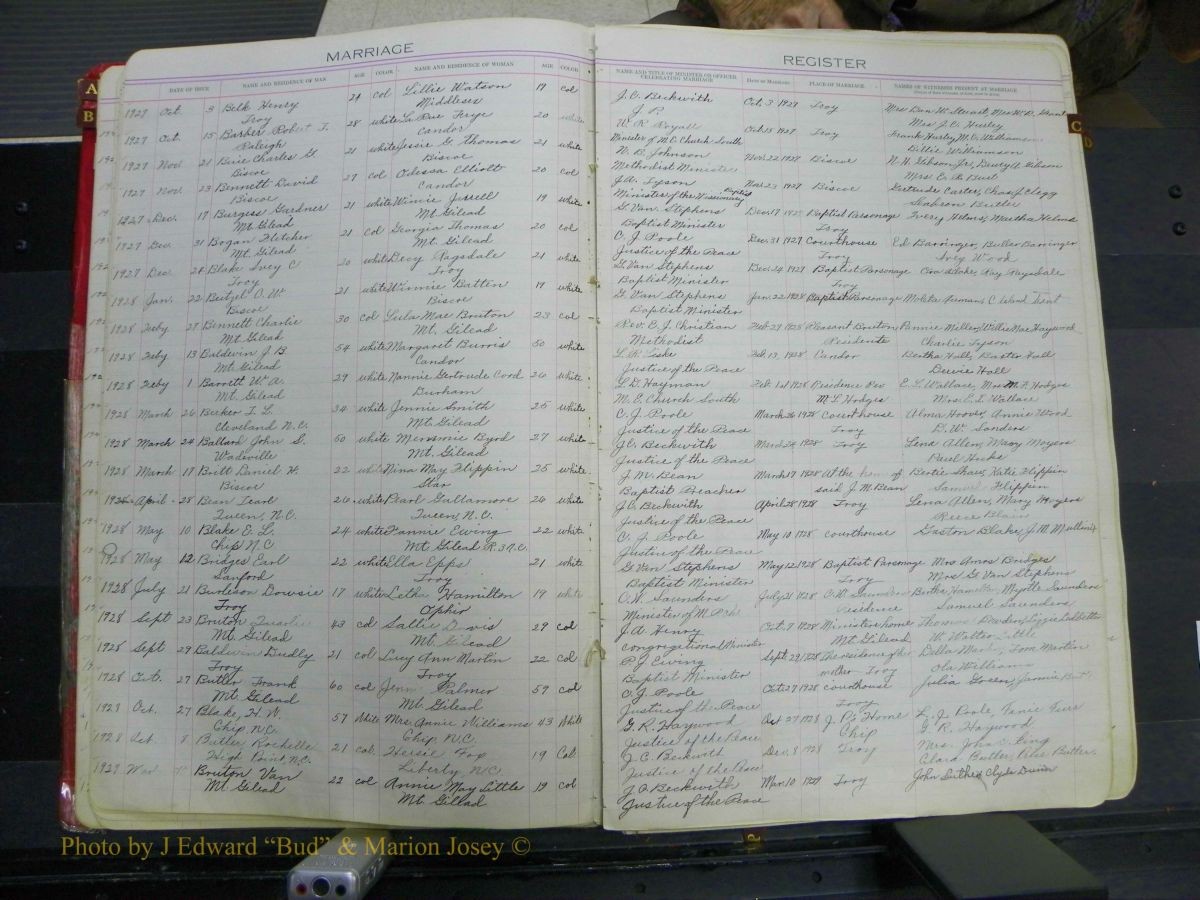 MARRIAGE
DATE OF ISSUE NAME AND RESIDENCE OF MAN AGE COLOR NAME AND RESIDENCE OF WOMAN AGE COLOR
1927 Oct. 3 Belk Henry 24 col Lillie Watson 19 col
Troy Middlesex
1927 Oct. 15 Barber Robert T. 28 white La Rue Frye 20
Raleigh Candor
1927 Nov 21 Buie Charles G 21 white Jessie G. Thomas 21 white
Biscoe Biscoe
1927 Nov. 23 Bennett David 27 col Odessa Elliott 20 col
Biscoe Candor
1927 Dec. 17 Burgess Gardner 21 white Winnie Jerrell 19 white
Mt Gilead Mt. Gilead
1927 Dec. 31 Bogan Fletcher 21 col Georgia Thomas 20 col
Mt. Gilead Mt. Gilead
1927 Dec 24 Blake Ivey C 20 white Ragsdale 21 white
Troy Troy
1928 Jan. 22 O. W. 21 white Winnie Batten 19 white
Biscoe Biscoe
1928 Feby 27 Bennett Charlie 30 col Lula Mae Bruton 23 col
Mt. Gilead Mt. Gilead
1928 Feby 13 Baldwin J. B. 54 white Margaret Burris 50 white
Mt. Gilead Candor
1928 Feby 1 Barrett W. A. 29 white Nannie Gertrude Cord 26 white
Mt. Gilead Durham
1928 March 26 Becker T. L. 34 white Jennie Smith 25 white
Cleveland N.C. Mt. Gilead
1928 March 24 Ballard John S. 60 white Byrd 27 white
Wadeville Mt. Gilead
1928 March 17 Britt Daniel H. 22 white Nina May Flippin 25 white
Biscoe Star
April 28 Bean 26 white Pearl Gallamore 26 white
N.C. N.C.
1928 May 10 Blake E. L. 24 white Fannie Ewing 22 white
Chip N.C Mt Gilead R. 3 N.C.
1928 May 12 Bridges Earl 22 white Ella Epps 21 white
Sanford Troy
1928 July 21 Burleson Dowsie 17 white Letha Hamilton 19 white
Troy Ophir
1928 Sept 23 Bruton 43 col Sallie Davis 29 col
Mt. Gilead Mt. Gilead
1928 Sept 29 Baldwin Dudly 21 col Lucy Ann Martin 22 col
Troy Troy
1928 Oct. 27 Butler Frank 60 col Palmer 59 col
Mt. Gilead Mt. Gilead
Oct. 27 Blake, H. W. 57 White Mrs. Annie Williams 43 White
Chip, N.C. Chip N.C
1928 8 Butler Rochelle 21 Col. Fox 19 Col.
High Point, N.C. Liberty, N.C.
1929 Bruton Van 22 col Annie May Little 19 col
Mt Gilead Mt. Gilead
REGISTER
NAME AND TITLE OF MINISTER OR OFFICER CELEBRATING MARRIAGE DATE OF MARRIAGE PLACE OF MARRIAGE NAMES OF WITNESSES PRESENT AT MARRIAGE
J. C. Beckwith Oct. 3 1927 Troy Mrs Dan W. Stuart, Mrs W. D.
J. P. Mrs J. C. Hurley
W. R. Royall Oct 15 1927 Troy Frank Hurley, M. C. Williamson
Minister of M E. Church South Billie Williamson
W. B. Johnson Nov. 22 1927 Biscoe N. H. Gibson, Jr,
Methodist Minister Mrs. E. R.
J. A. Tyson Nov 23 1927 Biscoe Gertrude Carter, Chas J. Clegg
Minister of the Missionary Baptist Seabron Butler
G. Van Stephens Dec 17 1927 Baptist Parsonage Ivery Helms, Martha Helms
Baptist Minister Troy
C. J. Poole Dec. 31 1927 Courthouse Ed Barringer, Buller Barringer
Justice of the Peace Troy Ivey Wood
G. Van Stephens Dec. 24 1927 Baptist Parsonage Ray Ragsdale
Baptist Minister Troy
G. Van Stephens Jan. 22 1928 Baptist Parsonage
Baptist Minister
Rev. E. J. Christian Feb 27 1928 Pleasant Bruton Miller, Willie Mae Haywood
Methodist Residence Charlie Tyson
L. R. Feb 13 1928 Candor Bertha Hall, Baxter Hall
Justice of the Peace Hall
L. D. Hayman Feb. 1st 1928 Residence Rev E. L. Wallace, Mrs M. F. Hodges
M. E. Church South M. F. Hodges Mrs. E. L. Wallace
C. J. Poole March 26 1928 Courthouse Alma Hoover, Annie Wood
Justice of the Peace Troy D. W. Sanders
J. C. Beckwith March 24 1928 Troy Lena Allen, Mary Moyers
Justice of the Peace Paul Hicks
J. M. Bean March 17 1928 At the home of Bertie Shaw, Katie Flippin
Baptist Preacher said J. M. Bean Samuel Flippin
J. C. Beckwith April 28 1928 Troy Lena Allen, Mary Moyers
Justice of the Peace Blair
C. J. Poole May 10 1928 Courthouse Gaston Blake, J. M.
Justice of the Peace
G Van Stephens May 12 1928 Baptist Parsonage Mrs Amos Bridges
Baptist Minister Troy Mrs. G. Van Stephens
O. W. Saunders July 21 1928 O. W. Saunders Bertha Hamilton, Myrtle Saunders
Minister of residence Samuel Saunders
J. A. Henry Oct. 7 1928 Ministers home Lizzie Ledbetter
Congregational Minister Mt. Gilead W. Walter Little
P. J. Ewing Sept 29 1928 The residence of the Della Tom Martin
Baptist Minister mother Troy Ola Williams
C. J. Poole Oct 27 1928 Courthouse Julia Green,
Justice of the Peace Troy
G. R. Haywood Oct 27 1928 J. P.'s Home L. J. Poole,
Justice of the Peace Chip G. R. Haywood
J. C. Beckwith Dec. 8 1928 Troy Mrs. John C. King
Justice of the Peace Clara Butler, Butler
J. C. Beckwith Mar. 10 1929 Troy John Clyde Dunn
Justice of the Peace
A
B
C
D
Photo by J Edward “Bud” & Marion Josey ©